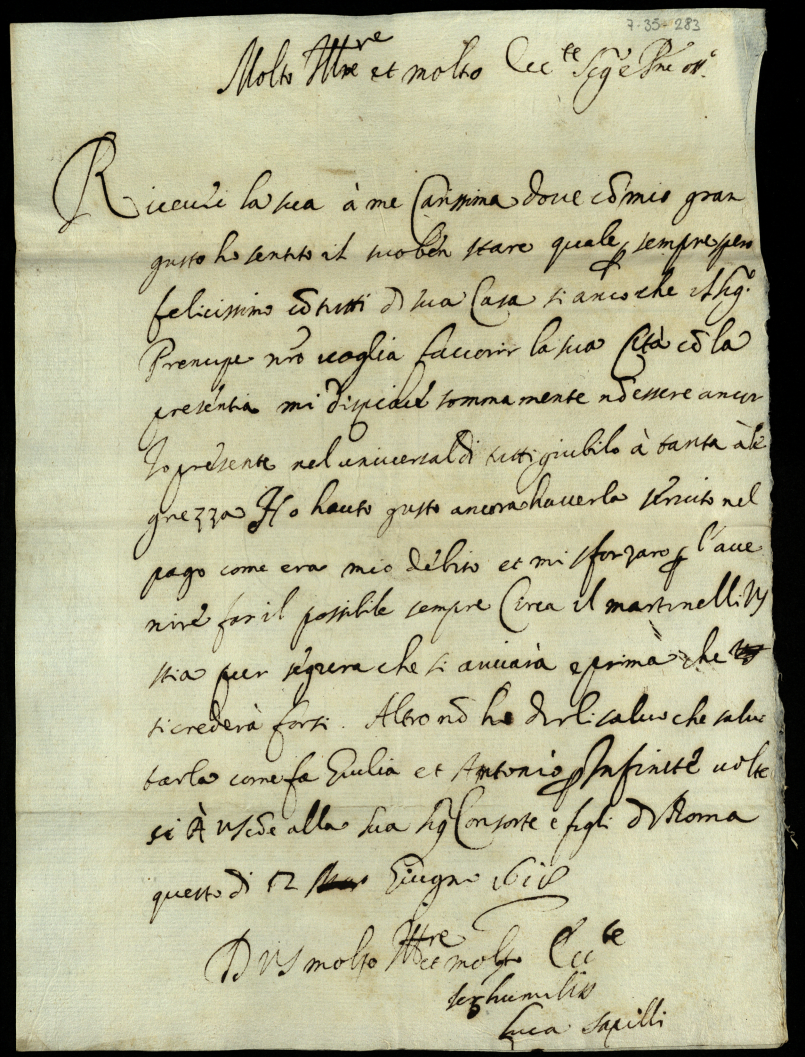 7-35-283
Molto Ill.re et molto Ecc.te Sig.e P.ne oss.
Riceuei la sua à me Carissima doue cō mio gran
gusto ho sentito il suo ben stare quale sempre spero
felicissimo cō tutti d sua Casa si anco che il Sig.
Prencipe nr̄o uoglia fauorir la sua Cità cō la
presentia mi dispiace sommamente nō essere ancor
Io presente nel uniuersal di tutti giubilo à tanta àle
grezza Ho hauto gusto ancora hauerla seruito nel
pago come era mio debito et mi sforzaro p l'aue
nire far il possibile sempre Circa il martinelli VS
stia pur segura che si auuiarà e prima che
si crederà forsi. Altro nō ho dirli saluo che salu
tarla come fa Giulia et Antonio p Infinite uolte
si À VS cōe alla sua Sig Consorte e figli d Roma
questo di 12 Giugno 1618
D VS molto Ill.re et molto Ecc.te
ser humiliss
Luca Sapilli